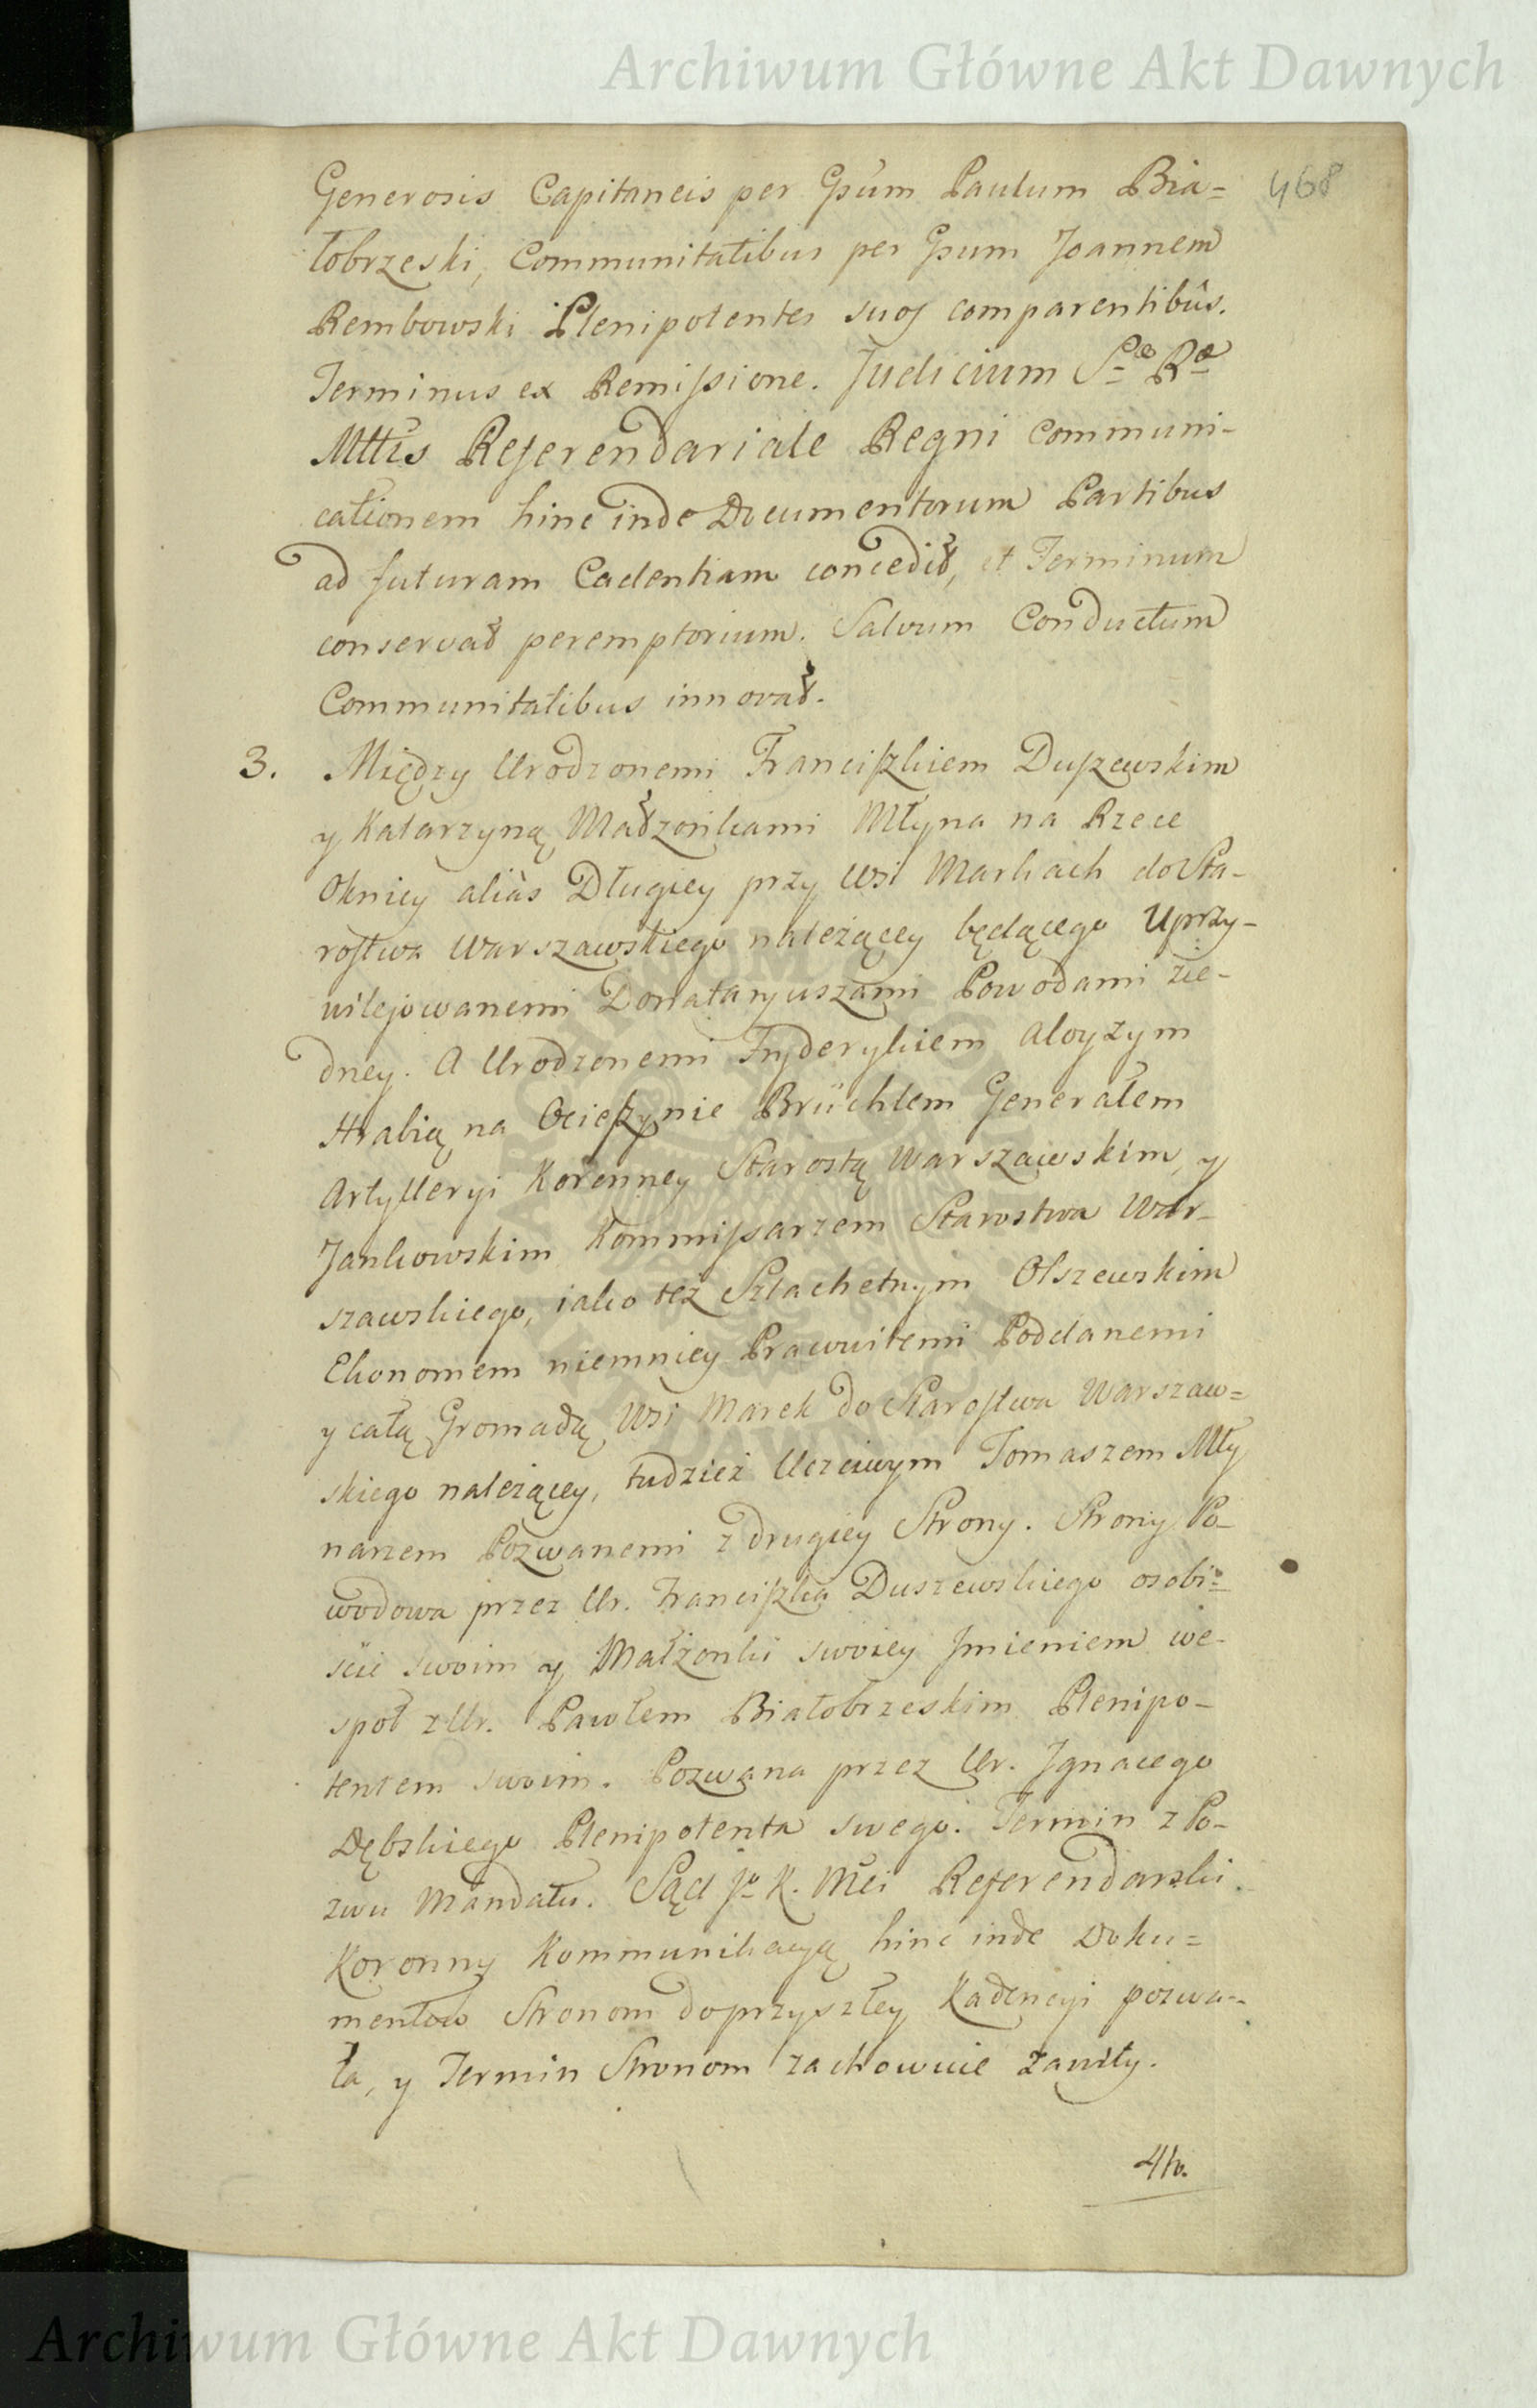 Archiwum Główne Akt Dawnych
468
Generosis Capitaneis per Gsum Paulum Bia=
łobrzeski, Communitatibus per Gsum Joannem
Rembowski Plenipotentes suos comparentibus.
Terminus ex Remissione. Judicium S=æ Ræ
Mttis Referendariale Regni communi-
cationem hinc inde Documentorum Partibus
ad futuram Cadentiam concedit, et Terminum
conservat peremptorium. Salvum Conductum
Communitatibus innovat.
3. Między Urodzonemi Franciszkiem Duszewskim
y Katarzyną Małżonkami Młyna na Rzece
Okniey aliàs Długiey przy Wsi Markach do Sta-
rostwa Warszawskiego należącey będącego Uprzy-
wilejowanemi Donataryuszami Powodami zie-
dney. A Urodzonemi Fryderykiem Aloyzym
Hrabią na Ocieszynie Brüchlem Generałem
Artylleryi Koronney Starostą Warszawskim, y
Jankowskim Kommissarzem Starostwa War-
szawskiego, iako też Szlachetnym Olszewskim
Ekonomem niemniey Pracowitemi Poddanemi
y całą Gromadą Wsi Marek do Starostwa Warszaw=
skiego należącey, tudzież Uczciwym Tomaszem Mły
narzem Pozwanemi z drugiey Strony. Strony Po-
wodowa przez Ur. Franciszka Duszewskiego osobi=
ście swoim y Małżonki swoiey Jmieniem we-
społ z Ur. Pawłem Białobrzeskim Plenipo-
tentem swoim. Pozwana przez Ur. Jgnacego
Dębskiego Plenipotenta swego. Termin z Po-
zwu Mandatu. Sąd Jo K. Mci Referendarski
Koronny Kommunikacyą hinc inde Doku=
mentow Stronom do przyszłey Kadencyi pozwa=
ła, y Termin Stronom zachowuie zawity.
4to.
Archiwum Główne Akt Dawnych